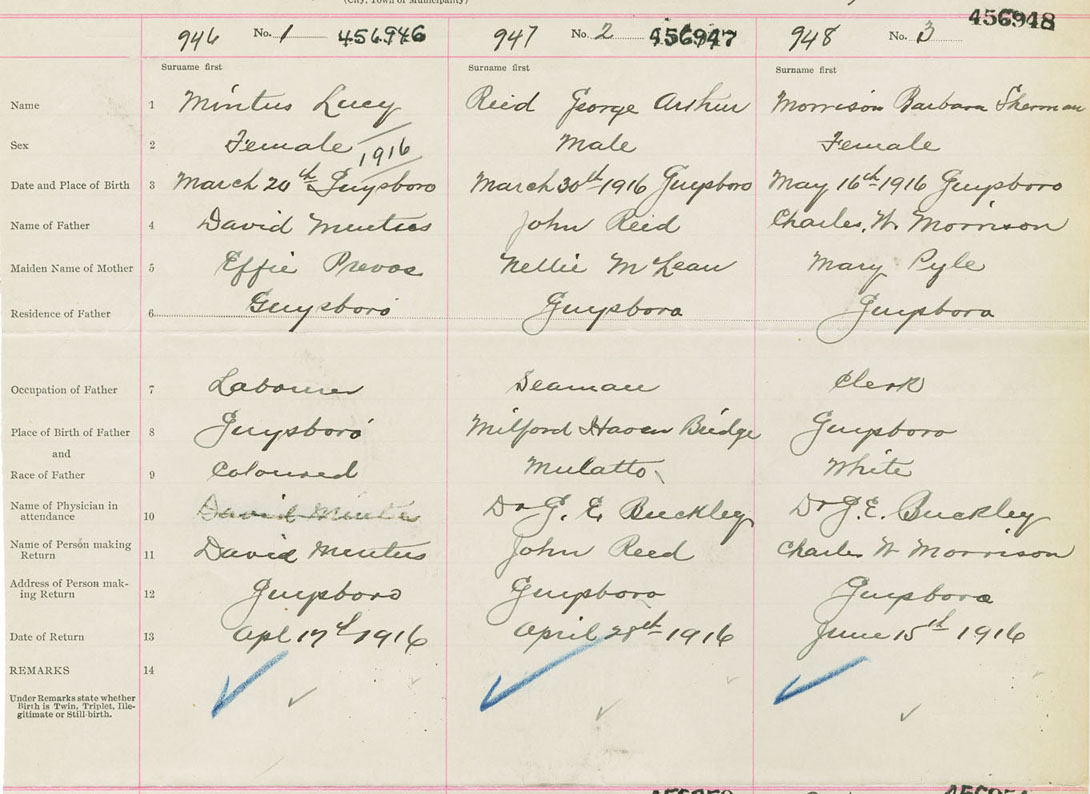 (City, Town or Municipality)
946 No. 1 456946 947 No. 2 456947 948 No. 3 456948
Surname first Surname first Surname first
Name 1 Mintus Lucy Reid George Arthur Morrison Barbara Sherman
Sex 2 Female Male Female
1916
Date and Place of Birth 3 March 20th Guysboro March 30th 1916 Guysboro May 16th 1916 Guysboro
Name of Father 4 David Mentus John Reid Charles. W. Morrison
Maiden Name of Mother 5 Effie Prevos Nellie McLean Mary Pyle
Residence of Father 6 Guysboro Guysboro Guysboro
Occupation of Father 7 Labourer Seaman Clerk
Place of Birth of Father 8 Guysboro Milford Haven Bridge Guysboro
and
Race of Father 9 Coloured Mulatto White
Name of Physician in
attendance 10 David Dr G. E. Buckley Dr G. E. Buckley
Name of Person making
Return 11 David Mentus John Reed Charles W Morrison
Address of Person mak-
ing Return 12 Guysboro Guysboro Guysboro
Date of Return 13 Apl 17th 1916 April 28th 1916 June 15th 1916
REMARKS 14
Under Remarks state whether
Birth is Twin, Triplet, Ille-
gitimate or Still-birth.